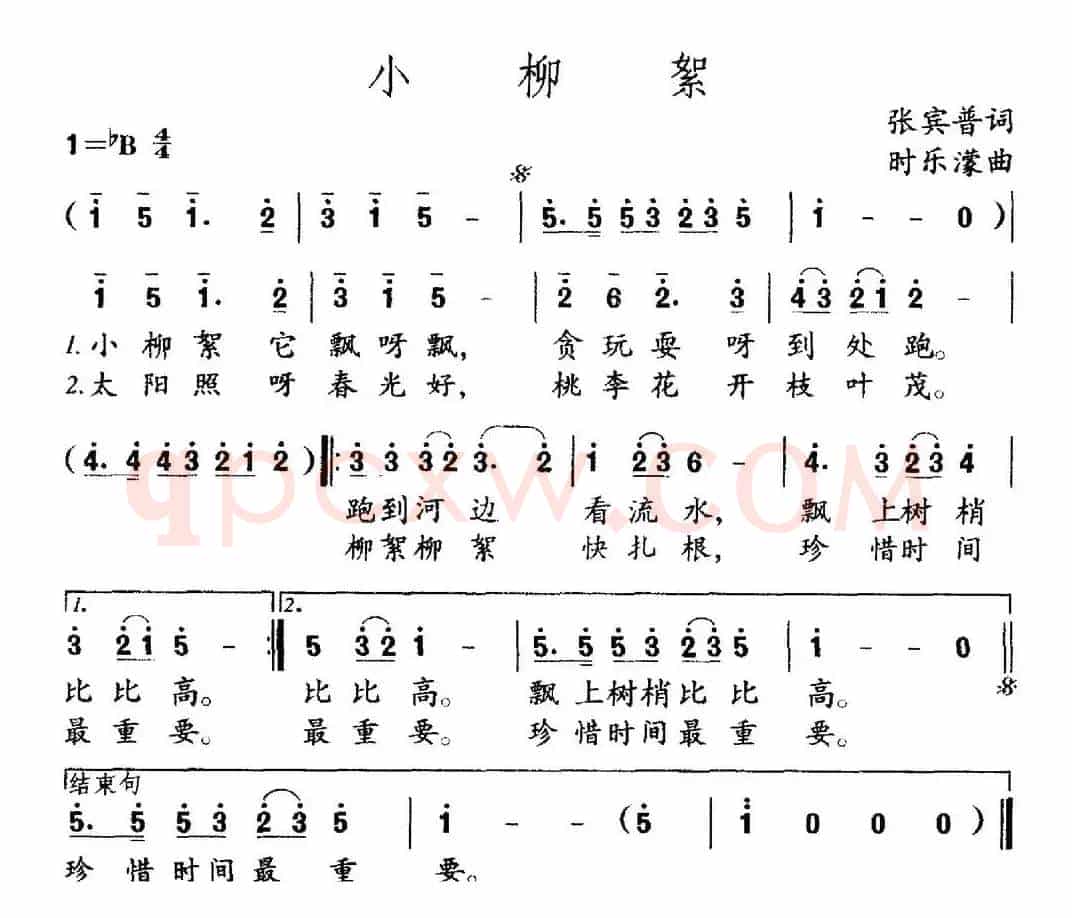 小柳絮
张宾普词
1=♭B 4/4
时乐濛曲
(1̇ 5 1̇. 2̇ | 3̇ 1̇ 5 - | 5̇. 5̇ 5̇ 3̇ 2̇ 3̇ 5̇ | 1̇ - - 0)|
1̇ 5 1̇. 2̇ | 3̇ 1̇ 5 - | 2̇ 6 2̇. 3̇ | 4̇ 3̇ 2̇ 1̇ 2̇ -
1.小柳絮 它飘呀飘, 贪玩耍呀到处跑。
2.太阳照呀春光好, 桃李花开枝叶茂。
(4̇. 4̇ 4̇ 3̇ 2̇ 1̇ 2̇)‖: 3̇ 3̇ 3̇ 2̇ 3̇. 2̇ | 1̇ 2̇ 3̇ 6 - | 4̇. 3̇ 2̇ 3̇ 4̇
qpcxw.COM
跑到河边 看流水, 飘上树梢
柳絮柳絮 快扎根, 珍惜时间
1. 2.
3̇ 2̇ 1̇ 5̇ - :‖ 5 3̇ 2̇ 1̇ - | 5̇. 5̇ 5̇ 3̇ 2̇ 3̇ 5̇ | 1̇ - - 0 ‖
比比高。 比比高。 飘上树梢比比高。
最重要。 最重要。 珍惜时间最重要。
结束句
5̇. 5̇ 5̇ 3̇ 2̇ 3̇ 5̇ | 1̇ - - (5̇ | 1̇ 0 0 0)‖
珍惜时间最重要。